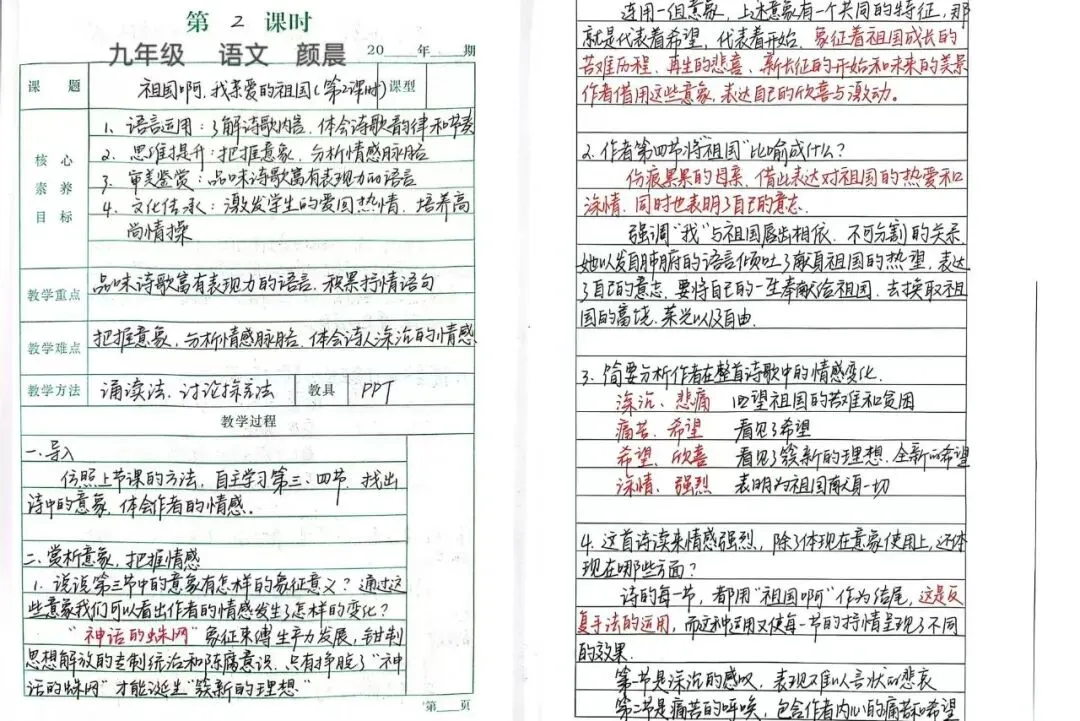 第 2 课时
九年级 语文 颜晨 20 年 期
课 题 祖国啊,我亲爱的祖国(第2课时) 课型
核 心 素 养 目 标
1、语言运用:了解诗歌内容、体会诗歌韵律和节奏
2、思维提升:把握意象、分析情感脉络
3、审美鉴赏:品味诗歌富有表现力的语言
4、文化传承:激发学生的爱国热情、培养高
尚情操
教学重点 品味诗歌富有表现力的语言、积累抒情语句
教学难点 把握意象,分析情感脉络、体会诗人深沉的情感
教学方法 诵读法、讨论探究法 教具 PPT
教学过程
一、导入
仿照上节课的方法,自主学习第三、四节,找出
诗中的意象,体会作者的情感。
二、赏析意象,把握情感
1、说说第三节中的意象有怎样的象征意义?通过这
些意象我们可以看出作者的情感发生了怎样的变化?
"神话的蛛网"象征束缚生产力发展,钳制
思想解放的专制统治和陈腐意识,只有挣脱了"神
话的蛛网"才能诞生"簇新的理想"
第 页
连用一组意象,上述意象有一个共同的特征,那
就是代表着希望,代表着开始,象征着祖国成长的
苦难历程、再生的悲喜、新长征的开始和未来的美景
作者借用这些意象,表达自己的欣喜与激动。
2、作者第四节将"祖国"比喻成什么?
伤痕累累的母亲、借此表达对祖国的热爱和
深情、同时也表明了自己的意志
强调"我"与祖国唇齿相依、不可分割的关系,
她以发自肺腑的语言倾吐了献身祖国的热望,表达
了自己的意志,要将自己的一生奉献给祖国,去换取祖
国的富饶、荣光以及自由.
3、简要分析作者在整首诗歌中的情感变化.
深沉、悲痛 回望祖国的苦难和贫困
痛苦、希望 看见了希望
希望、欣喜 看见了簇新的理想、全新的希望
深情、强烈 表明为祖国献身一切
4、这首诗读来情感强烈,除了体现在意象使用上,还体
现在哪些方面?
诗的每一节,都用"祖国啊"作为结尾,这是反
复手法的运用,而这种运用又使每一节的抒情呈现了不同
的效果.
第一节是深沉的感叹、表现难以言状的悲哀
第二节是痛苦的呼唤,包含作者内心的痛苦和希望